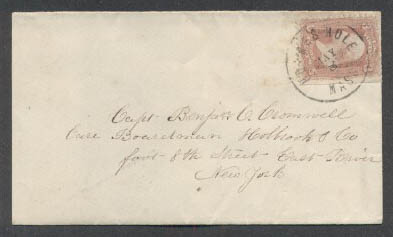 HOLMES HOLE
MAS
Capt Benj. C. Cromwell
Care Boardman Holbrook & Co
foot 8th Street East River
New York